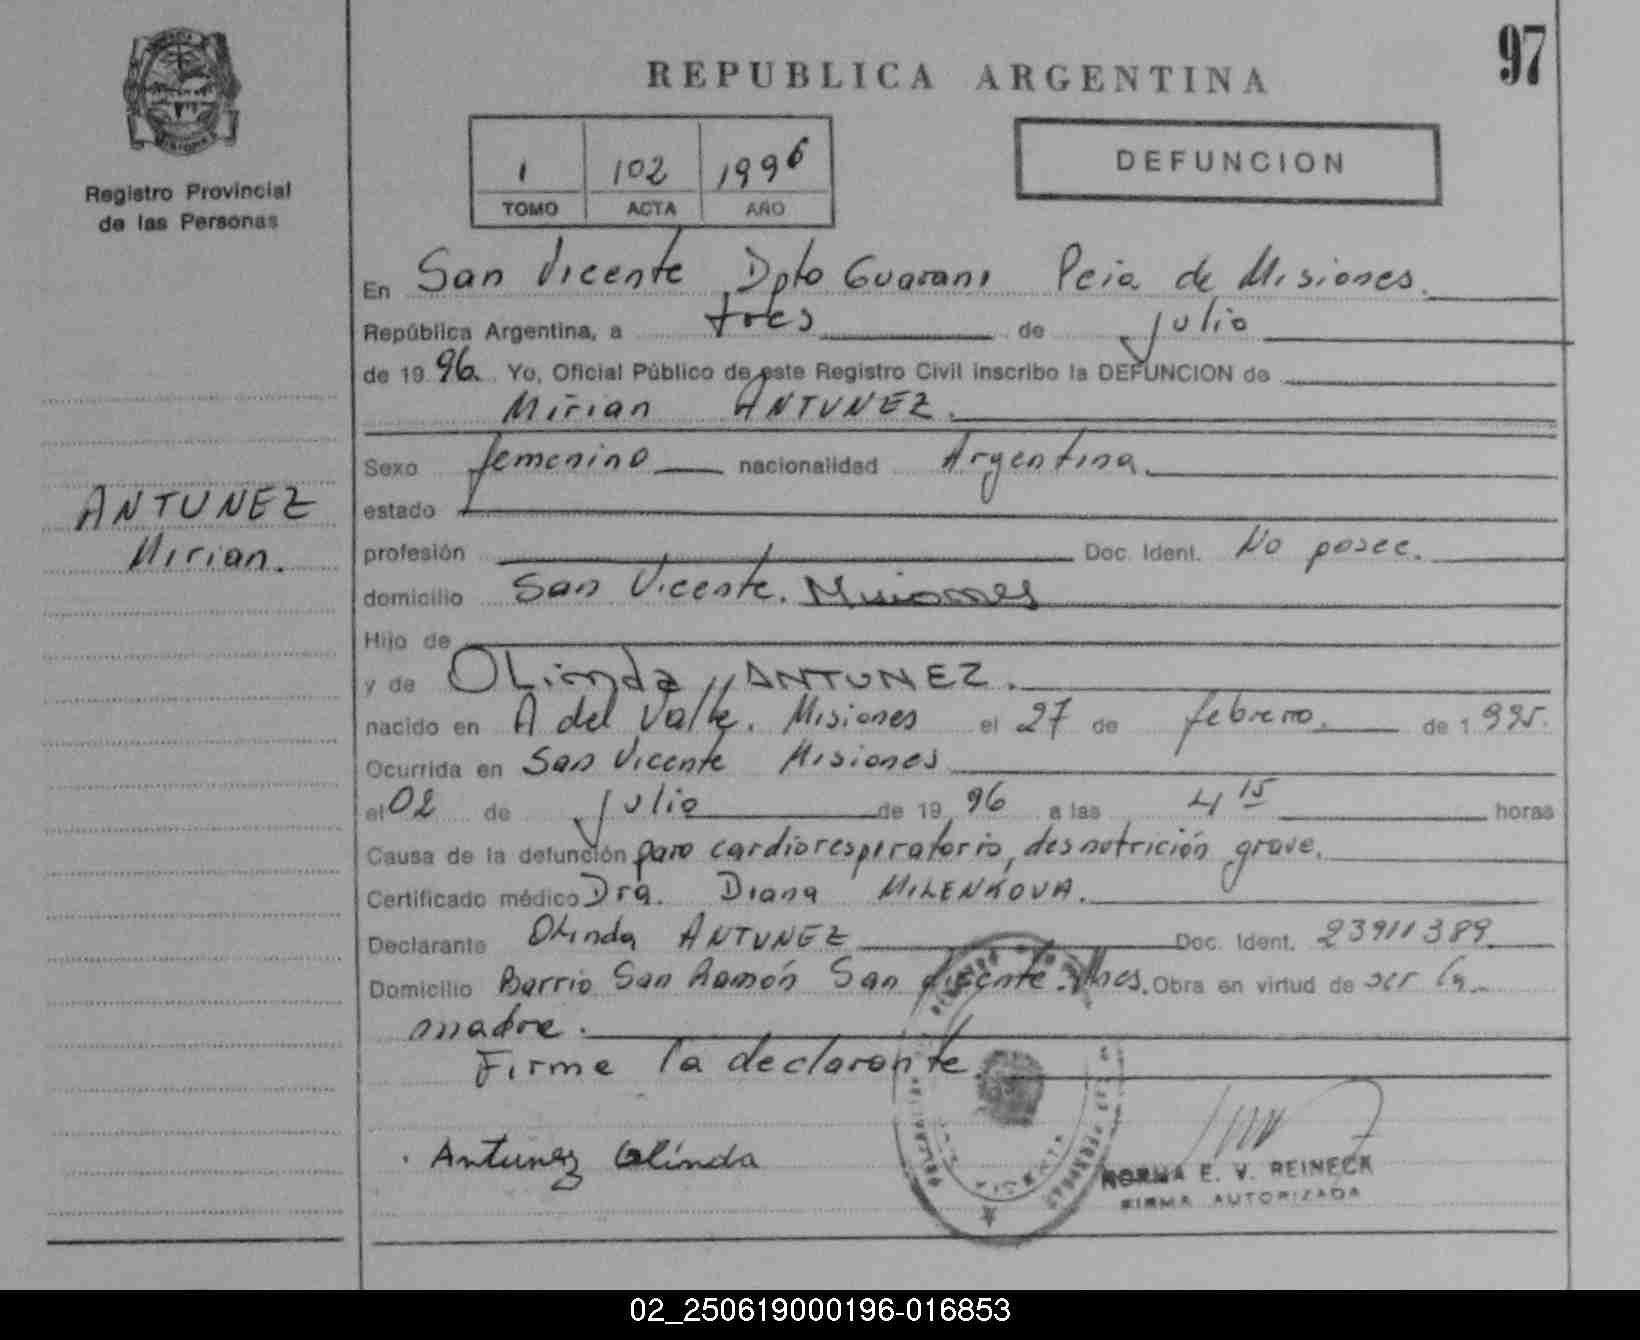 97
REPUBLICA ARGENTINA
Registro Provincial
de las Personas
DEFUNCION
1 102 1996
TOMO ACTA AÑO
En San Vicente Dpto Guarani Pcia de Misiones.
República Argentina, a tres de julio
de 1996 Yo, Oficial Público de este Registro Civil inscribo la DEFUNCION de
Mirian ANTUNEZ.
ANTUNEZ
Mirian.
Sexo femenino nacionalidad Argentina.
estado
profesión Doc. Ident. No posee.
domicilio San Vicente. Misiones
Hijo de
y de OLinda ANTUNEZ.
nacido en A del Valle. Misiones el 27 de febrero. de 1.995.
Ocurrida en San Vicente Misiones
el 02 de julio de 19 96 a las 4 15 horas
Causa de la defunción paro cardiorespiratorio, desnutrición grave.
Certificado médico Dra. Diana MILENKOVA.
Declarante OLinda ANTUNEZ Doc. Ident. 23911389
Domicilio Barrio San Ramón San Vicente. Mnes. Obra en virtud de ser la
madre.
Firme la declarante
Antunez Olinda
NORMA E. V. REINECK
FIRMA AUTORIZADA
02_250619000196-016853